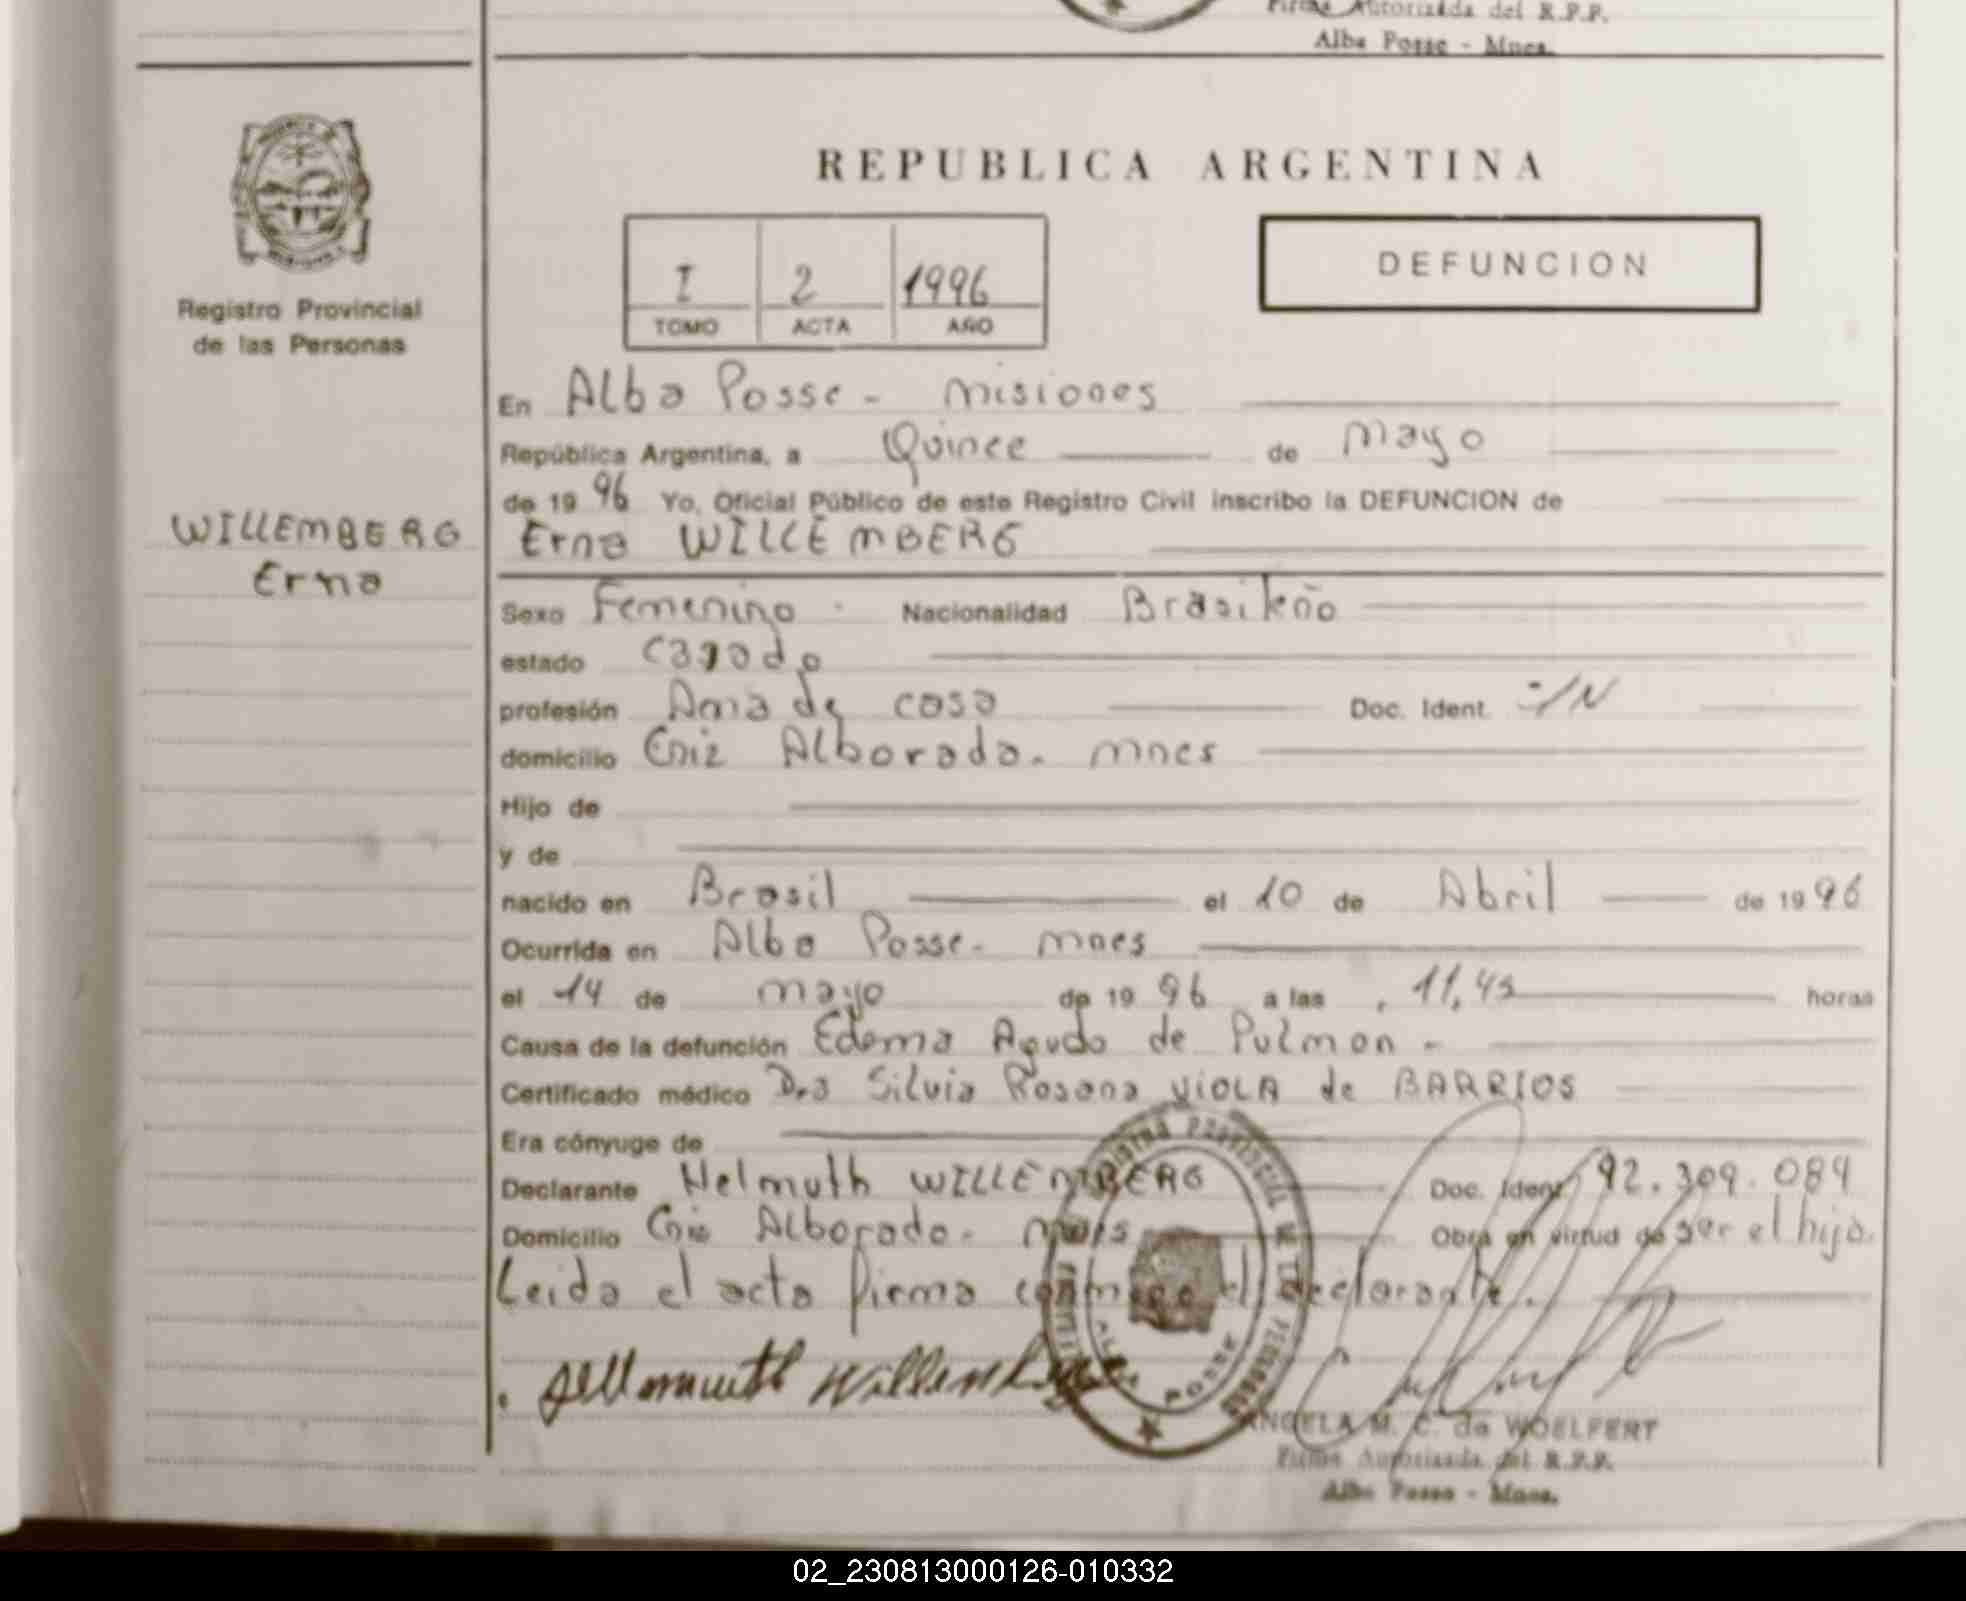 Firma Autorizada del R.P.P.
Alba Posse - Mnes.
Registro Provincial
de las Personas
WILLEMBERG
Erna
REPUBLICA ARGENTINA
I 2 1996
TOMO ACTA AÑO
DEFUNCION
En Alba Posse - Misiones
República Argentina, a Quince de Mayo
de 19 96 Yo, Oficial Público de este Registro Civil inscribo la DEFUNCION de
Erna WILLEMBERG
Sexo Femenino Nacionalidad Brasileño
estado casada
profesión Ama de casa Doc. Ident.
domicilio Alborada. Mnes
Hijo de
y de
nacido en Brasil el 10 de Abril de 19 96
Ocurrida en Alba Posse - Mnes
el 14 de mayo de 19 96 a las 11,45 horas
Causa de la defunción Edema Agudo de Pulmon -
Certificado médico Dra Silvia Rosana VIOLA de BARRIOS
Era cónyuge de
Declarante Helmuth WILLEMBERG Doc. Ident. 92.309.084
Domicilio Alborada - Mnes Obra en virtud de ser el hijo.
Leida el acta firma conmigo el declarante.
REGISTRO PROVINCIAL DE LAS PERSONAS
ALBA POSSE
ANGELA M. C. de WOELFERT
Firma Autorizada del R.P.P.
Alba Posse - Mnes.
02_230813000126-010332